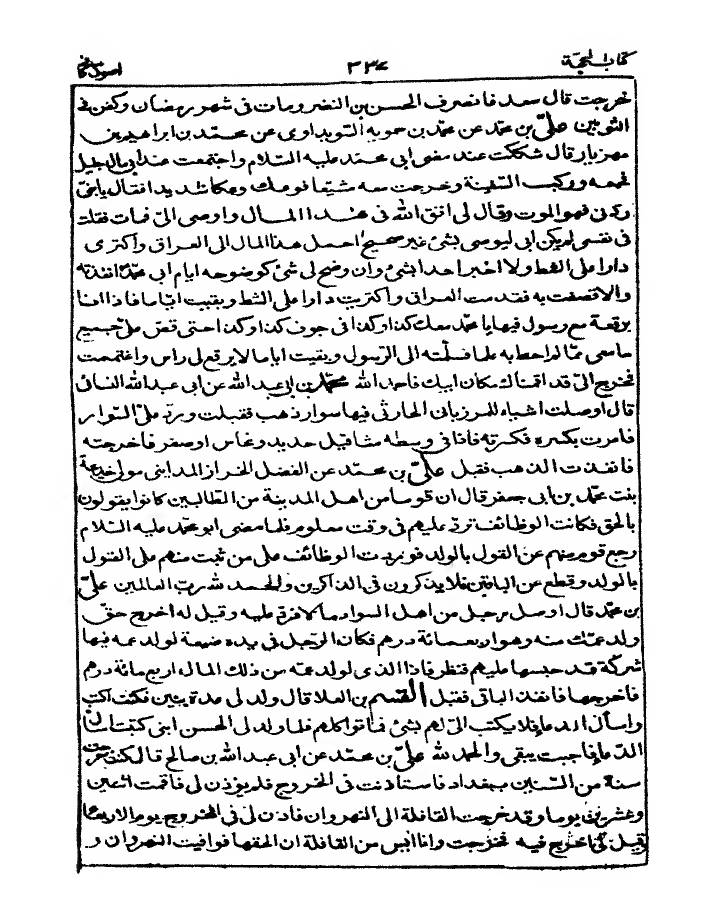 كتاب الحجة ٣٣٧ اصول كا
خرجت قال سعد فانصرف الحسن بن النضر ومات فى شهر رمضان وكفن فى
الثوبين علىّ بن محمّد عن محمّد بن حمويه السويداوى عن محمّد بن ابراهيم بن
مهزيار قال شككت عند مضى ابى محمّد عليه السّلام واجتمعت عند ابى مال جليل
فحمله وركب السّفينة وخرجت معه مشيّعا فوعك وعكا شديدا فقال يا بنى
ردّنى فهو الموت وقال لى اتق الله فى هذا المال واوصى الىّ فمات فقلت
فى نفسى لم يكن ابى ليوصى بشئ غير صحيح احمل هذا المال الى العراق واكترى
دارا على الشط ولا اخبر احدا بشئ وان وضح لى شئ كوضوحه ايام ابى محمّد انفذته
والا قصفت به فقدمت العراق واكتريت دارا على الشط وبقيت ايّاما فاذا انا
برقعة مع رسول فيها يا محمّد معك كذا وكذا فى جوف كذا وكذا حتى قص علىّ جميع
ما معى ممّا لم احط به علما فسلّمته الى الرّسول وبقيت اياما لا يرفع لى راس واغتممت
فخرج الىّ قد اقمناك مكان ابيك فاحمد الله محمّد بن ابى عبد الله عن ابى عبد الله النسائى
قال اوصلت اشياء للمرزبانى الحارثى فيها سوار ذهب فقبلت وردّ علىّ السّوار
فامرت بكسره فكسرته فاذا فى وسطه مثاقيل حديد ونحاس او صفر فاخرجته
فانفذت الذهب فقبل علىّ بن محمّد عن الفضل الخراز المداينى مولى خديجة
بنت محمّد بن ابى جعفر قال ان قوما من اهل المدينة من الطالبين كانوا يقولون
بالحق فكانت الوظائف ترد عليهم فى وقت معلوم فلما مضى ابو محمّد عليه السّلام
رجع قوم منهم عن القول بالولد فوردت الوظائف على من ثبت منهم على القول
بالولد وقطع عن الباقين فلا يذكرون فى الذاكرين والحمد لله ربّ العالمين علىّ
بن محمّد قال اوصل رجل من اهل السواد مالا فردّ عليه وقيل له اخرج حق
ولد عمّك منه وهو اربعمائة درهم فكان الرّجل فى يده ضيعة لولد عمه فيها
شركة قد حبسها عليهم فنظر فاذا الذى لولد عمّه من ذلك المال اربع مائة درهم
فاخرجها فانفذ الباقى فقبل القسم بن العلا قال ولد لى عدة بنين فكنت اكتب
واسأل الدعاء فلا يكتب الىّ لهم بشئ فماتوا كلهم فلما ولد لى الحسن ابنى كتبت اسأل
الدّعاء فاجبت يبقى والحمد لله علىّ بن محمّد عن ابى عبد الله بن صالح قال كنت خرجت
سنة من السّنين ببغداد فاستاذنت فى الخروج فلم يؤذن لى فاقمت اثنين
وعشرين يوما وقد خرجت القافلة الى النهروان فاذن لى فى الخروج يوم الاربعا
وقيل لى اخرج فيه فخرجت وانا آيس من القافلة ان الحقها فوافيت النهروان و